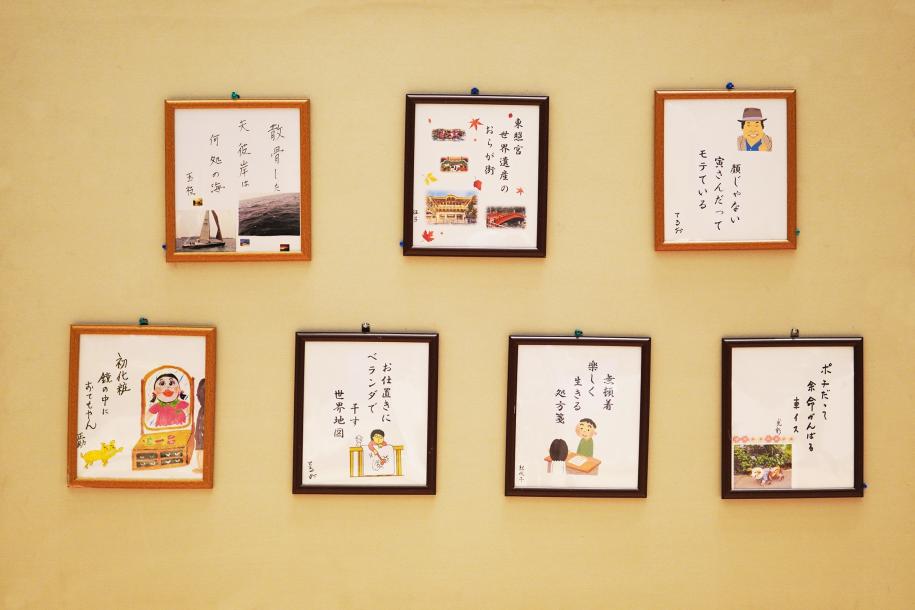 散骨した
夫彼岸は
何処の海
玉枝
東照宮
世界遺産の
おらが街
顔じゃない
寅さんだって
モテている
初化粧
鏡の中に
おてもやん
お仕置きに
ベランダで
干す
世界地図
無頓着
楽しく
生きる
処方箋
ポチだって
余命がんばる
車イス